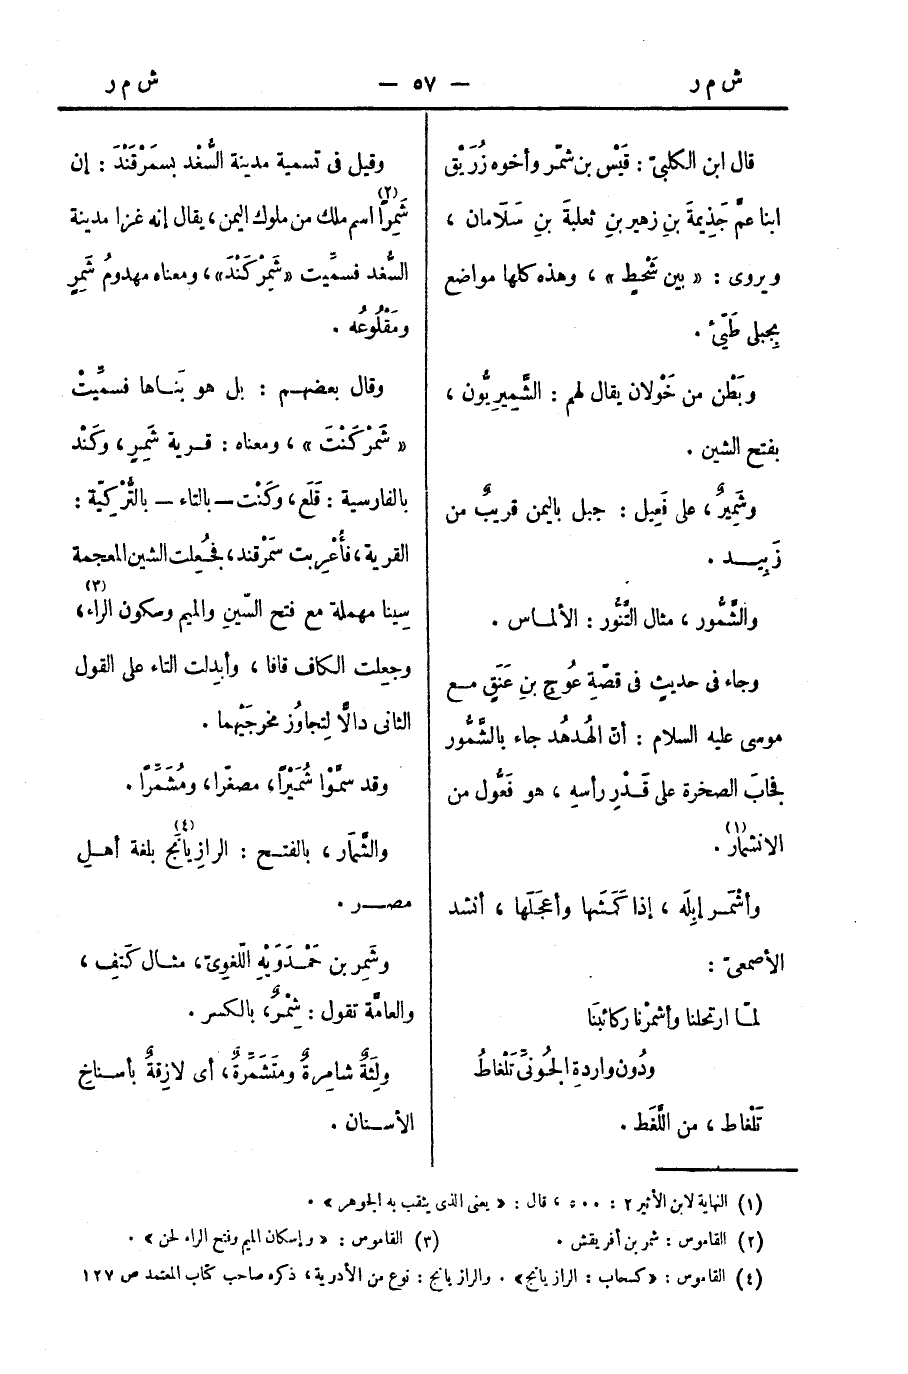 ش م ر — ٥٧ — ش م ر
قال ابن الكلبىّ : قَيْس بن شَمّر وأخوه زُرَيْق
ابنا عمّ جَذِيمةَ بنِ زهير بنِ ثعلبةَ بنِ سَلَامان ،
ويروى : « بين شَحْيط » ، وهذه كلها مواضع
بِجبلى طَيّئ .
وبَطْن من خَوْلان يقال لهم : الشَّمِيريُّون ،
بفتح الشين .
وشَمِيرٌ ، على فَعِيل : جبل باليمن قريبٌ من
زَبِيــد .
والشَّمُّور ، مثال التَّنُّور : الألمــاس .
وجاء فى حديثٍ فى قصّةِ عُوجٍ بنِ عَنَقٍ مـع
موسى عليه السلام : أنّ الهُدهُد جاء بالشَّمُّور
فجابَ الصخرة على قَـدْرِ رأسهِ ، هو فَعُّول من
الانشمار (١) .
وأشْمَـر إبِلَه ، إذا كَمَشَها وأعجَلَها ، أنشد
الأصمعىّ :
لمّـا ارتحلنا وأشمرْنا ركائبنَا
ودُون واردةِ الجُونىّ تَلْغاطُ
تَلْغاط ، من اللَّغَط .
وقيل فى تسمية مدينة السُّغْد بسَمَرْقَنْدَ : إن
شَمِراً (٢) اسم ملك من ملوك اليمن ، يقال إنه غزا مدينة
السُّغد فسمِّيت « شَمِرْ كَنْدَ » ، ومعناه مهدومُ شَمِرٍ
ومَقْلُوعُه .
وقال بعضهـم : بل هو بَنـاها فسميِّتْ
« شَمَرْ كَنْتَ » ، ومعناه : قـرية شَمِـرٍ ، وكَنْد
بالفارسية : قَلَع ، وكَنْت — بالتاء — بالتُّرْكيّة :
القرية ، فأُعْرِبت سَمَرْقند ، فجُعِلت الشين المعجمة
سِينا مهملة مع فتح السّينِ والميم وسكون الراء (٣) ،
وجعِلت الكاف قافا ، وأبدِلت التاء على القول
الثانى دالًا لِتجاوُز مخرجَيْهما .
وقد سمَّوْا شُمَيْرًا ، مصغّرا ، ومُشَمَّرًا .
والشَّمار ، بالفتـح : الرازيانَج (٤) بلغة أهـلِ
مصــر .
وشَمِر بن حَمْـدَوَيْهِ اللّغوِىّ ، مثـال كَتِفٍ ،
والعامَّة تقول : شِمْـرٌ ، بالكسر .
ولِثَةٌ شامِرةٌ ومتَشَمِّرةٌ ، أى لازِقةٌ بأسـناخِ
الأسـنان .
(١) النهاية لابن الأثير ٢ : ٥٠٠ ، قال : « يعنى الذى يثقب به الجوهر » .
(٢) القاموس : شمر بن أفريقش . (٣) القاموس : « وإسكان الميم وفتح الراء لحن » .
(٤) القاموس : « كسحاب : الرازيانج » . والرازيانج : نوع من الأدوية ، ذكره صاحب كتاب المعتمد ص ١٢٧